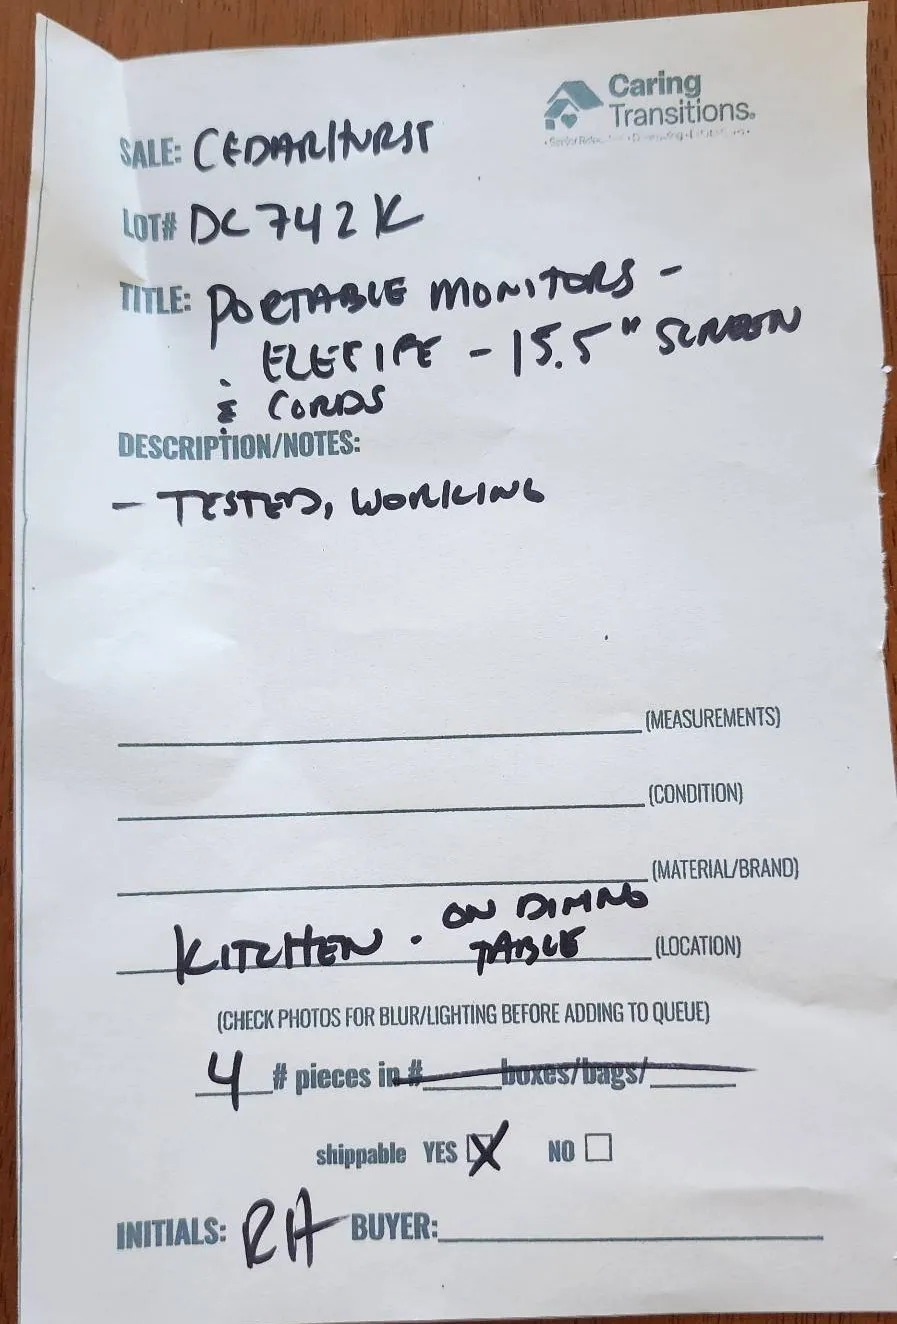 Caring
Transitions.
SALE: CEDARHURST
LOT# DC742K
TITLE: PORTABLE MONITORS -
- 15.5" SCREEN
& CORDS
DESCRIPTION/NOTES:
- TESTED, WORKING
(MEASUREMENTS)
(CONDITION)
(MATERIAL/BRAND)
KITCHEN. ON DINING
TABLE (LOCATION)
(CHECK PHOTOS FOR BLUR/LIGHTING BEFORE ADDING TO QUEUE)
4 # pieces in # boxes/bags/
shippable YES X NO
INITIALS: RH BUYER: